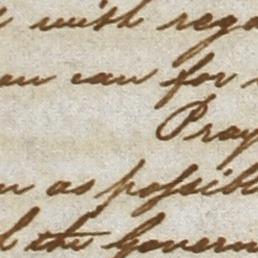 with rega
can for
Pray
as possibl
the Govern